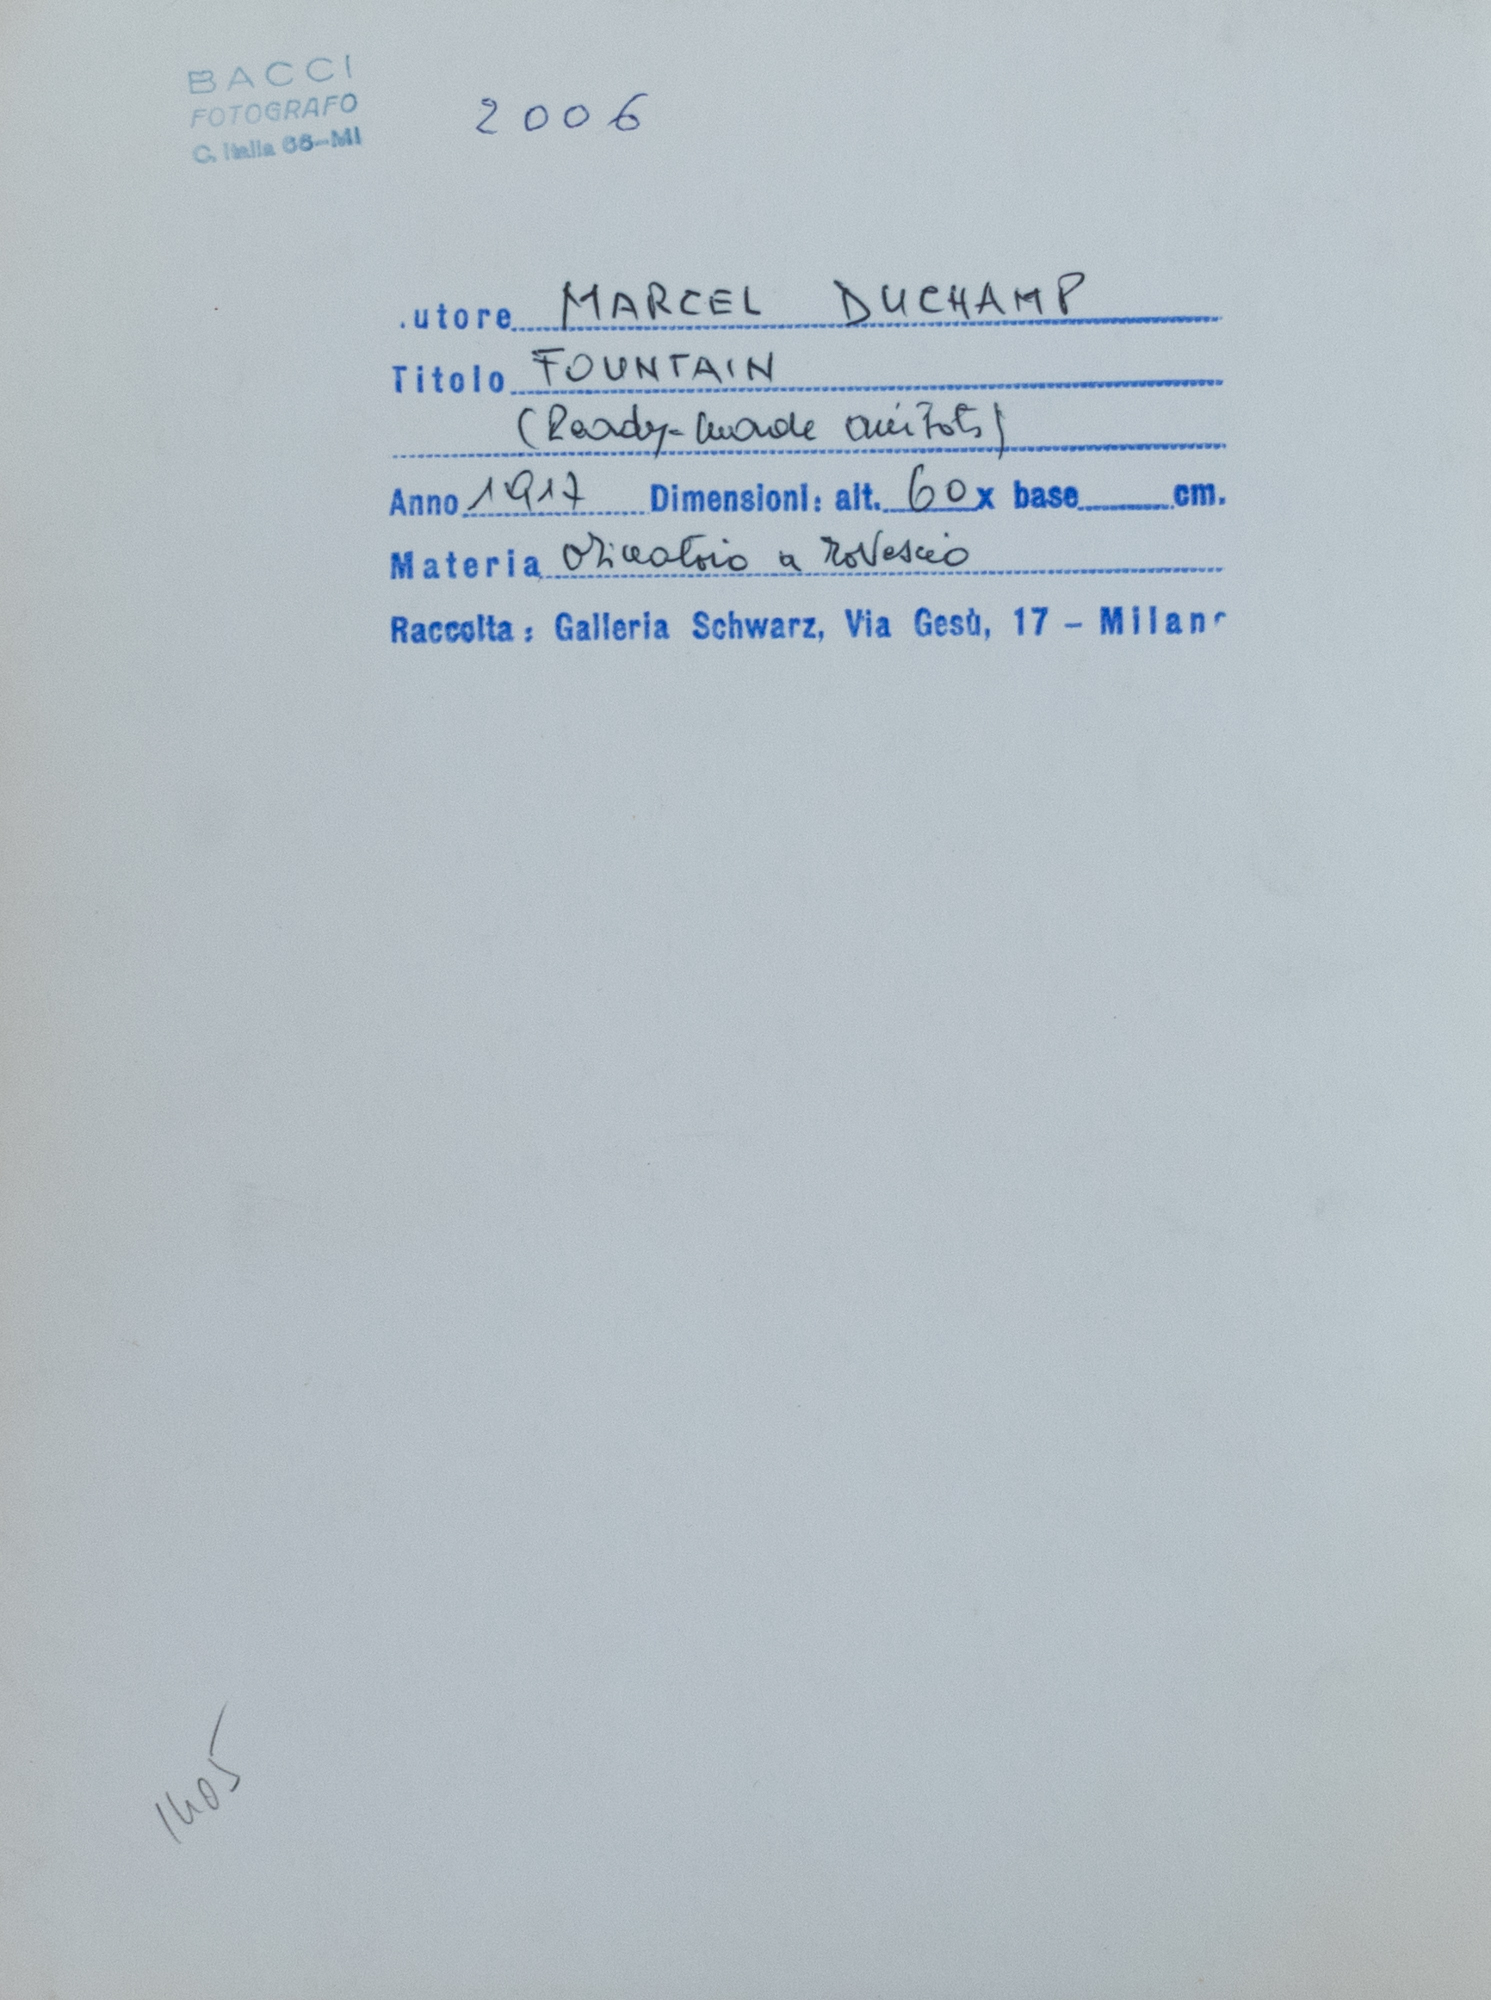 BACCI
FOTOGRAFO
C. Italia 66-MI
2006
.utore MARCEL DUCHAMP
Titolo FOUNTAIN
(Ready-made
Anno 1917 Dimensioni: alt. 60 x base cm.
Materia orinatoio a rovescio
Raccolta: Galleria Schwarz, Via Gesù, 17 - Milano
1405